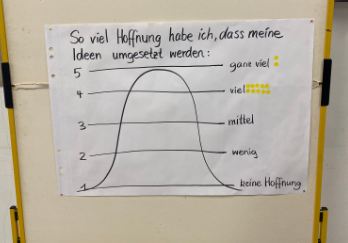 So viel Hoffnung habe ich, dass meine
Ideen umgesetzt werden:
5 ganz viel
4 viel
3 mittel
2 wenig
1 keine Hoffnung